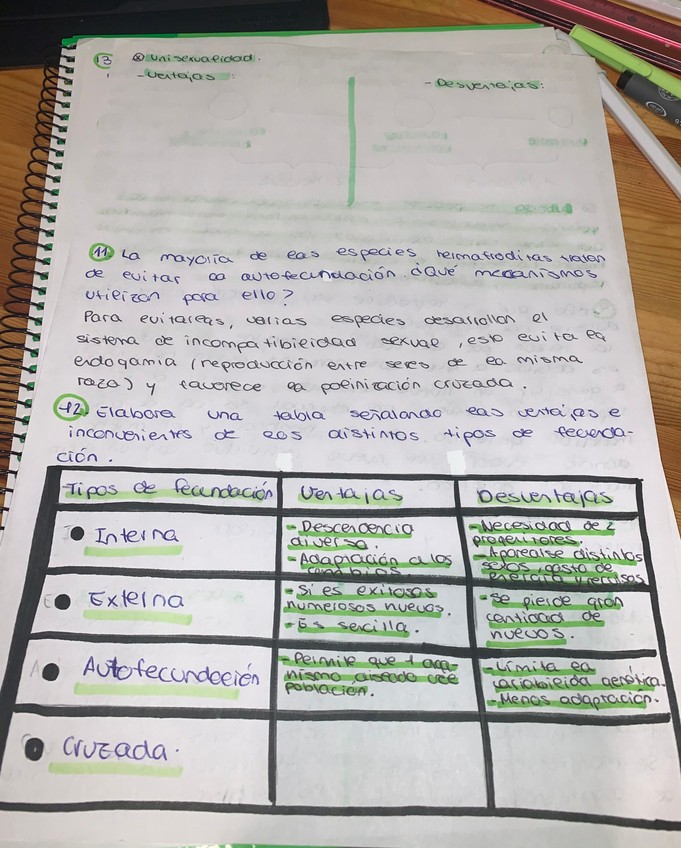 13 ⊗ Unisexualidad.
- Ventajas :
- Desventajas:
11 La mayoría de las especies hermafroditas tratan
de evitar la autofecundación. ¿Qué mecanismos
utilizan para ello?
Para evitarlas, varias especies desarrollan el
sistema de incompatibilidad sexual, esto evita la
endogamia (reproducción entre seres de la misma
raza) y favorece la polinización cruzada.
12. Elabora una tabla señalando las ventajas e
inconvenientes de los distintos tipos de fecunda-
ción.
Tipos de fecundación
Ventajas
Desventajas
Interna
- Descendencia
diversa.
- Adaptación a los
cambios
- Necesidad de 2
progenitores.
- Aparearse distintos
sexos gasto de
energía y recursos
Externa
- Si es exitosos
numerosos huevos.
- Es sencilla.
- Se pierde gran
cantidad de
huevos.
Autofecundación
- Permite que 1 orga-
nismo aislado cree
población.
- Límita la
variabilida genética.
- Menos adaptación.
Cruzada.